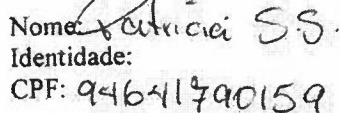 Nome: Patricia S.S.
Identidade:
CPF: 94641790159